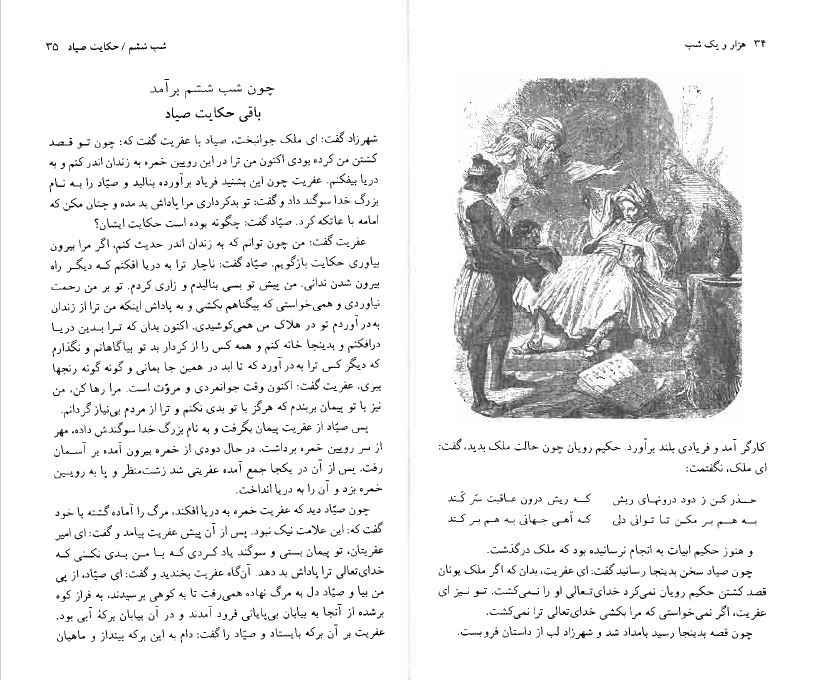 ۳۴ هزار و یک شب
کارگر آمد و فریادی بلند برآورد. حکیم رویان چون حالت ملک بدید، گفت:
ای ملک، نگفتمت:
حــذر کـن ز دود درونهـای ریش کــه ریش درون عـاقبت سر کُـند
بــه هــم بـر مکـن تـا تـوانی دلی کـه آهـی جهـانی بـه هـم بـر کـند
و هنوز حکیم ابیات به انجام نرسانیده بود که ملک درگذشت.
چون صیاد سخن بدینجا رسانید گفت: ای عفریت، بدان که اگر ملک یونان
قصد کشتن حکیم رویان نمی‌کرد خدای‌تعالی او را نمی‌کشت. تو نیز ای
عفریت، اگر نمی‌خواستی که مرا بکشی خدای‌تعالی ترا نمی‌کشت.
چون قصه بدینجا رسید بامداد شد و شهرزاد لب از داستان فروبست.
شب ششم / حکایت صیاد ۳۵
چون شب ششم برآمد
باقی حکایت صیاد
شهرزاد گفت: ای ملک جوانبخت، صیاد با عفریت گفت که: چون تو قصد
کشتن من کرده بودی اکنون من ترا در این رویین خمره به زندان اندر کنم و به
دریا بیفکنم. عفریت چون این بشنید فریاد برآورده بنالید و صیّاد را به نام
بزرگ خدا سوگند داد و گفت: تو بدکرداری مرا پاداش بد مده و چنان مکن که
امامه با عاتکه کرد. صیّاد گفت: چگونه بوده است حکایت ایشان؟
عفریت گفت: من چون توانم که به زندان اندر حدیث کنم، اگر مرا بیرون
بیاوری حکایت بازگویم. صیّاد گفت: ناچار ترا به دریا افکنم که دیگر راه
بیرون شدن ندانی. من پیش تو بسی بنالیدم و زاری کردم. تو بر من رحمت
نیاوردی و همی‌خواستی که بیگناهم بکشی و به پاداش اینکه من ترا از زندان
به‌درآوردم تو در هلاک من همی‌کوشیدی. اکنون بدان که ترا بدین دریا
درافکنم و بدینجا خانه کنم و همه کس را از کردار بد تو بیاگاهانم و نگذارم
که دیگر کس ترا به‌درآورد که تا ابد در همین جا بمانی و گونه گونه رنجها
ببری. عفریت گفت: اکنون وقت جوانمردی و مروّت است. مرا رها کن، من
نیز با تو پیمان بربندم که هرگز با تو بدی نکنم و ترا از مردم بی‌نیاز گردانم.
پس صیّاد از عفریت پیمان بگرفت و به نام بزرگ خدا سوگندش داده، مهر
از سر رویین خمره برداشت. در حال دودی از خمره بیرون آمده بر آسمان
رفت. پس از آن در یکجا جمع آمده عفریتی شد زشت‌منظر و پا به رویین
خمره بزد و آن را به دریا انداخت.
چون صیّاد دید که عفریت خمره به دریا افکند، مرگ را آماده گشته با خود
گفت که: این علامت نیک نبود. پس از آن پیش عفریت بیامد و گفت: ای امیر
عفریتان، تو پیمان بستی و سوگند یاد کردی که با من بدی نکنی که
خدای‌تعالی ترا پاداش بد دهد. آن‌گاه عفریت بخندید و گفت: ای صیّاد، از پی
من بیا و صیّاد دل به مرگ نهاده همی‌رفت تا به کوهی برسیدند، به فراز کوه
برشده از آنجا به بیابان بی‌پایانی فرود آمدند و در آن بیابان برکهٔ آبی بود.
عفریت بر آن برکه بایستاد و صیّاد را گفت: دام به این برکه بینداز و ماهیان